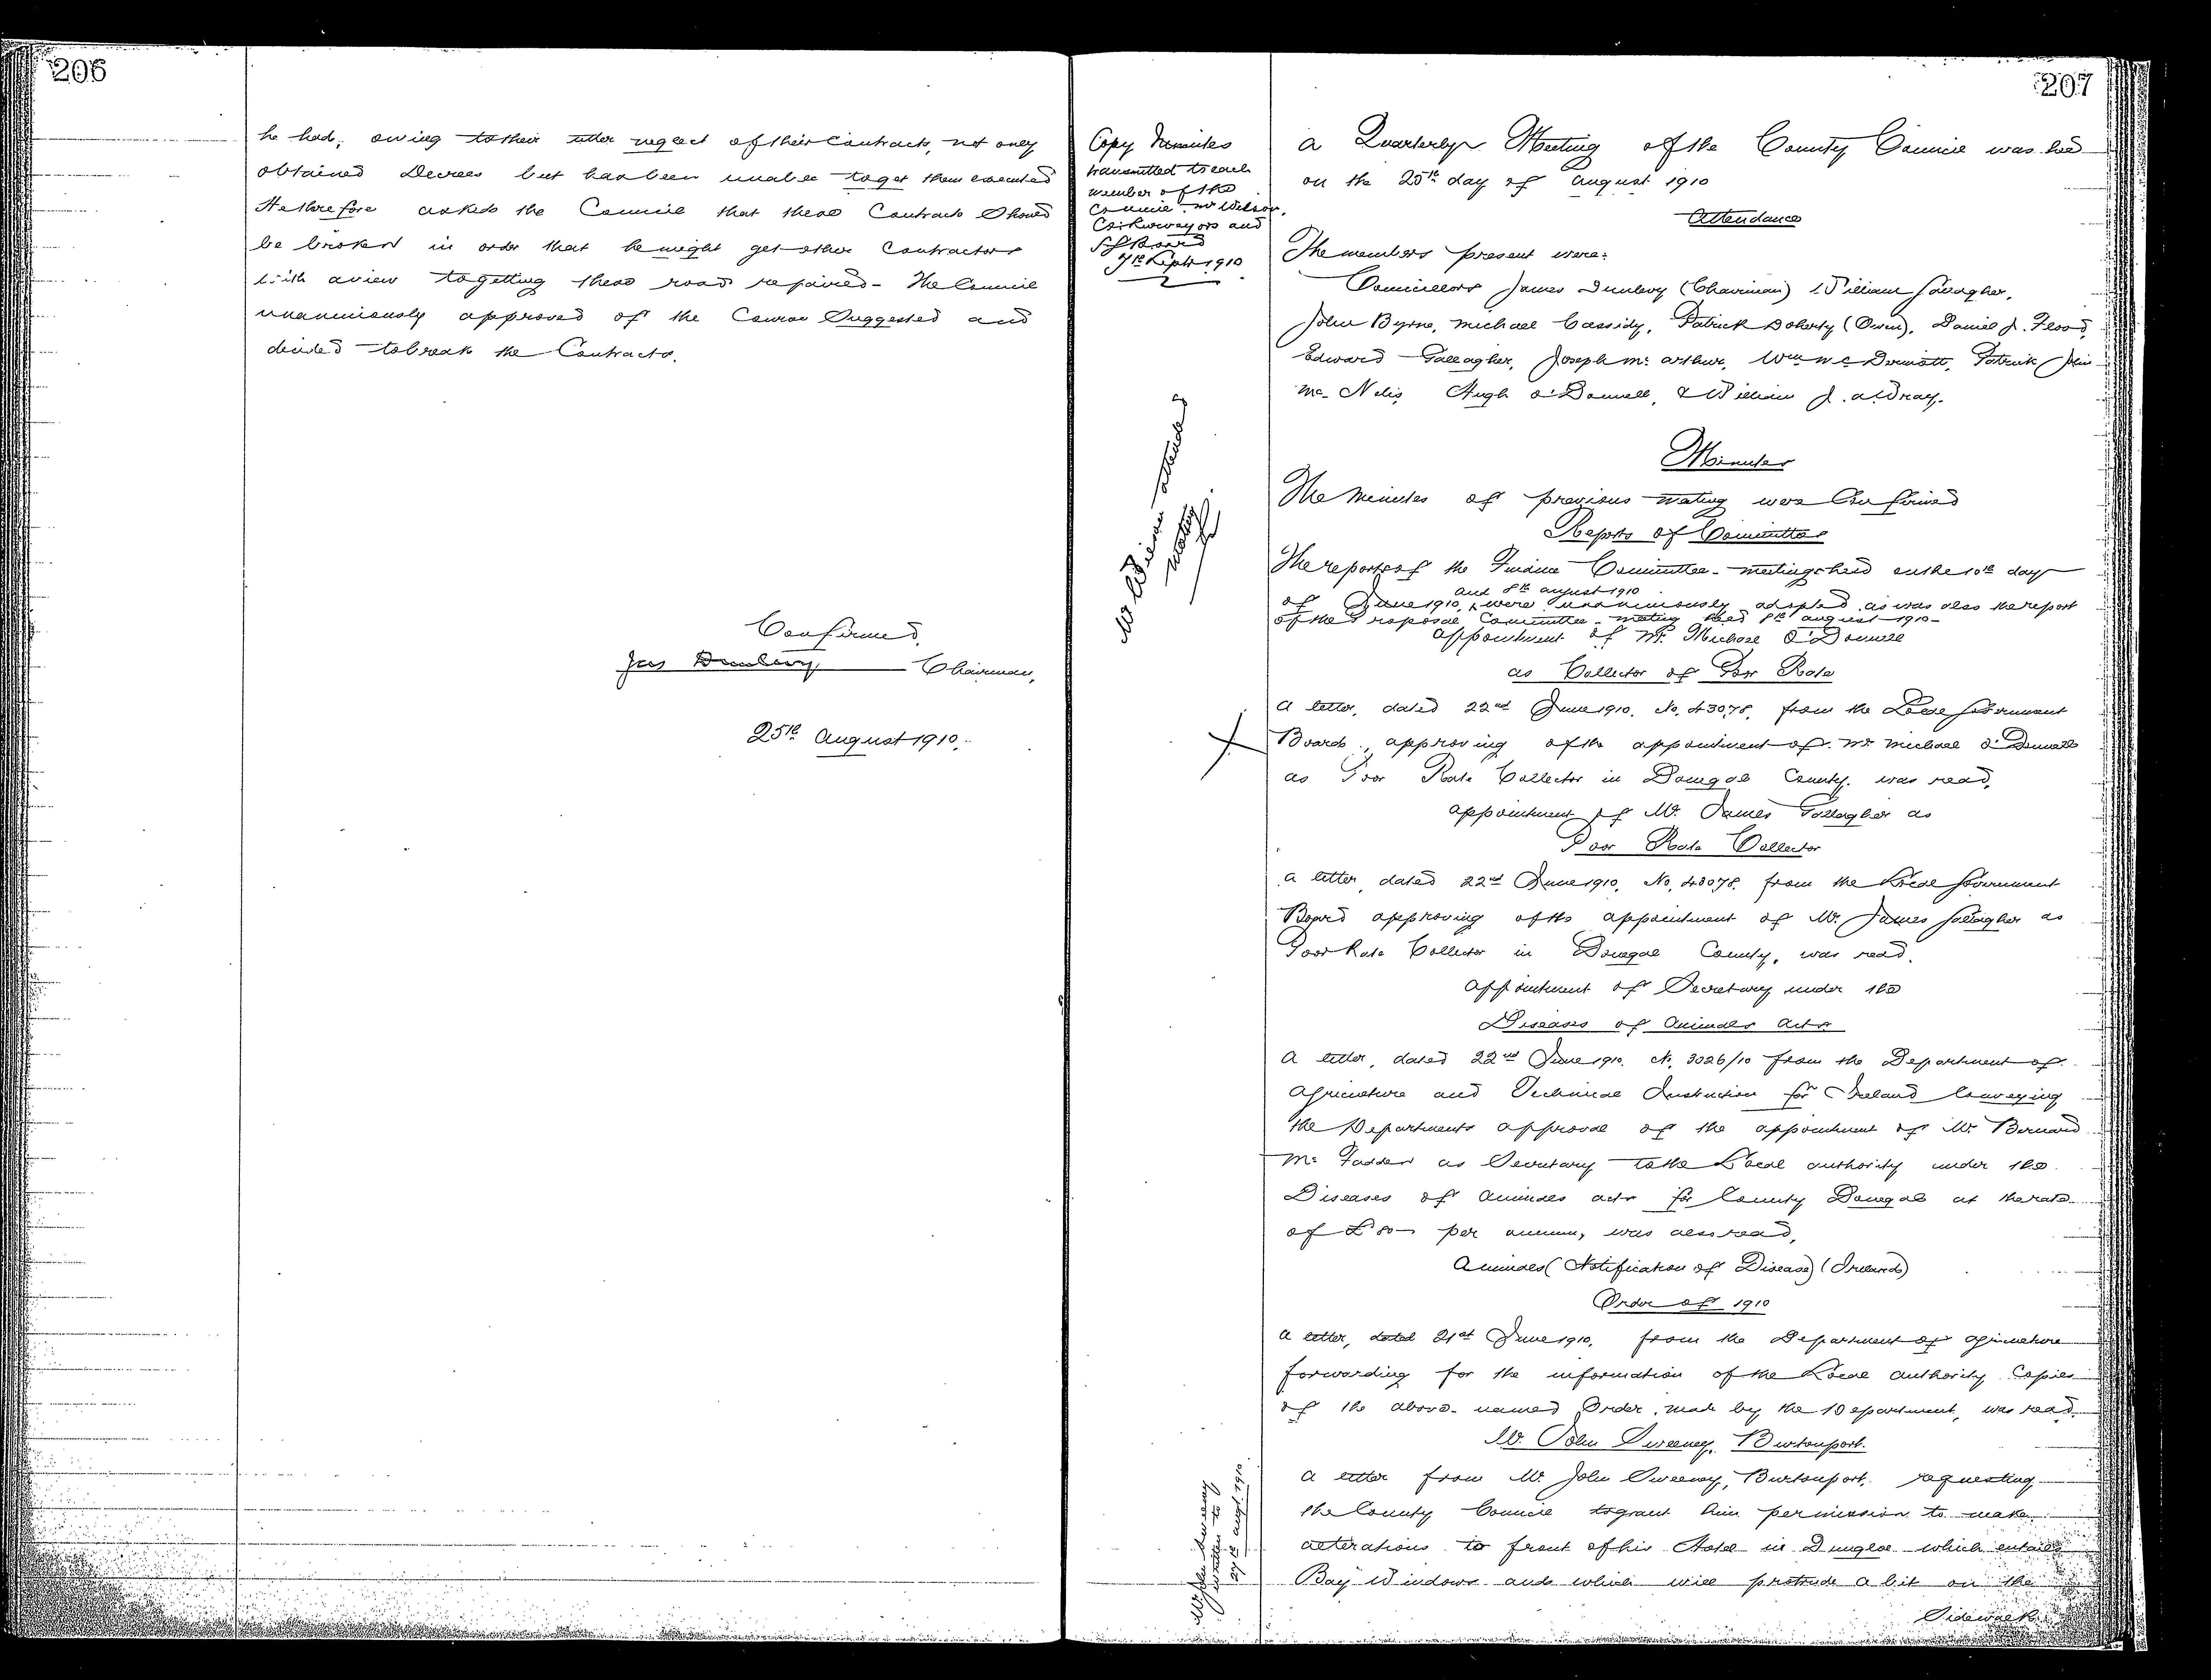 206
he had, owing to their utter neglect of their Contracts, not only
obtained Decrees but has been unable to get them executed
He therefore asked the Council that these Contracts should
be broken in order that he might get other Contractors
with a view to getting these roads repaired - The Council
unanimously approved of the Course Suggested and
decided to break the Contracts.
Confirmed,
Jas Dunlevy Chairman,
25th August 1910.
207
Copy Minutes
transmitted to each
member of the
Council. Mr Wilson,
Co: Surveyors and
7th Septr 1910
A Quarterly Meeting of the County Council was held
on the 25th day of August 1910
Attendance
The members present were:
Councillors James Dunlevy (Chairman) William Gallagher,
John Byrne, Michael Cassidy, Patrick Doherty (Owen), Daniel J. Flood,
Edward Gallagher, Joseph Mc Arthur, Wm Mc Dermott, Patrick John
Mc Nelis, Hugh O'Donnell, & William J.
Mr Wilson attended
meeting
Minutes
The Minutes of previous meeting were Confirmed
Reports of Committees
The reports of the Finance Committee - meetings held on the 10th day
and 8th August 1910
of June 1910, were unanimously adopted, as was also the report
of the Proposal Committee - meeting held 8th August 1910 -
Appointment of Mr. Michael O'Donnell
as Collector of Poor Rate
A letter, dated 22nd June 1910, No. 43078, from the Local Government
Board, approving of the appointment of Mr Michael O'Donnell
as Poor Rate Collector in Donegal County, was read,
Appointment of Mr. James Gallagher as
Poor Rate Collector
A letter, dated 22nd June 1910, No. 43078, from the Local Government
Board approving of the appointment of Mr. James Gallagher as
Poor Rate Collector in Donegal County, was read.
Appointment of Secretary under the
Diseases of Animals Acts
A letter, dated 22nd June 1910, No. 3026/10 from the Department of
Agriculture and Technical Instruction for Ireland Conveying
the Departments approval of the appointment of Mr. Bernard
Mc Fadden as Secretary to the Local authority under the
Diseases of Animals Acts for County Donegal at the rate
of £80 - per annum, was also read,
Animals (Notification of Disease) (Ireland)
Order of 1910
A letter, dated 21st June 1910, from the Department of Agriculture
forwarding for the information of the Local authority Copies
of the above-named Order, made by the Department, was read.
Mr. John Sweeney, Burtonport.
Mr John Sweeny
written to
27th Augt. 1910
A letter from Mr. John Sweeney, Burtonport, requesting
the County Council to grant him permission to make
alterations to front of his Hotel in Dungloe which entails
Bay Windows and which will protrude a bit on the
Sidewalk